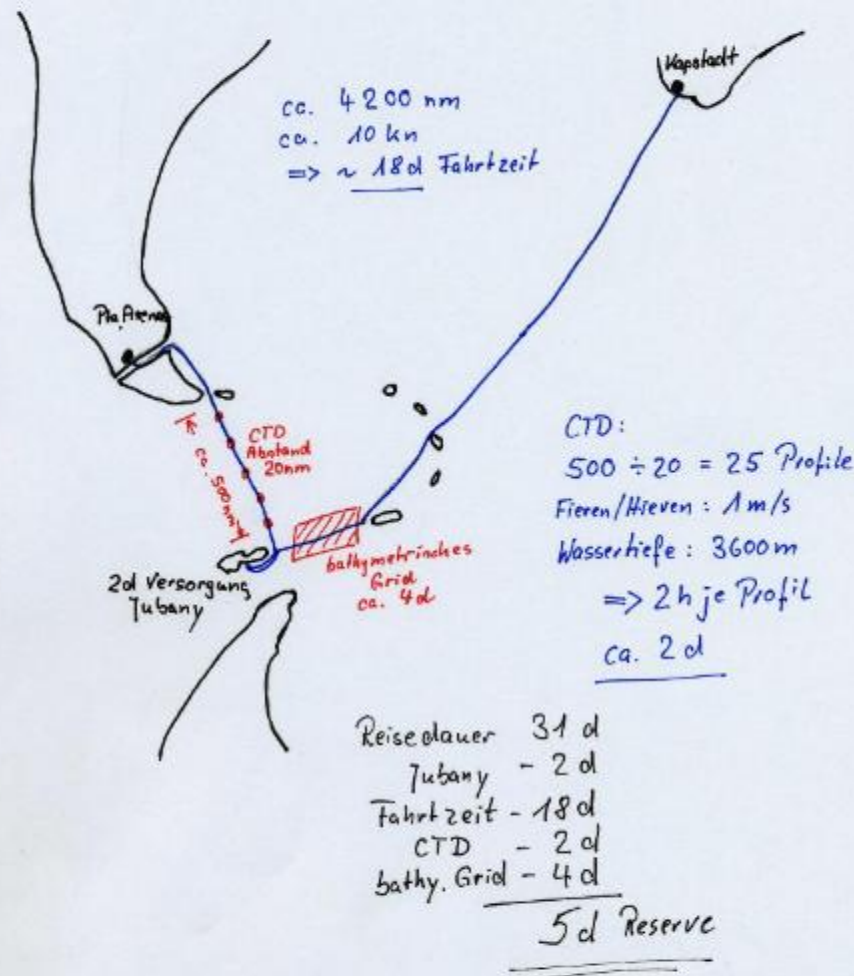 Kapstadt
ca. 4200 nm
ca. 10 kn
=> ~ 18d Fahrtzeit
Pta. Arenas
CTD
Abstand
20nm
ca. 500 nm
2d Versorgung
Jubany
bathymetrisches
Grid
ca. 4d
CTD:
500 ÷ 20 = 25 Profile
Fieren/Hieven: 1 m/s
Wassertiefe: 3600m
=> 2h je Profil
ca. 2 d
Reisedauer 31 d
Jubany - 2 d
Fahrtzeit - 18 d
CTD - 2 d
bathy. Grid - 4 d
5d Reserve